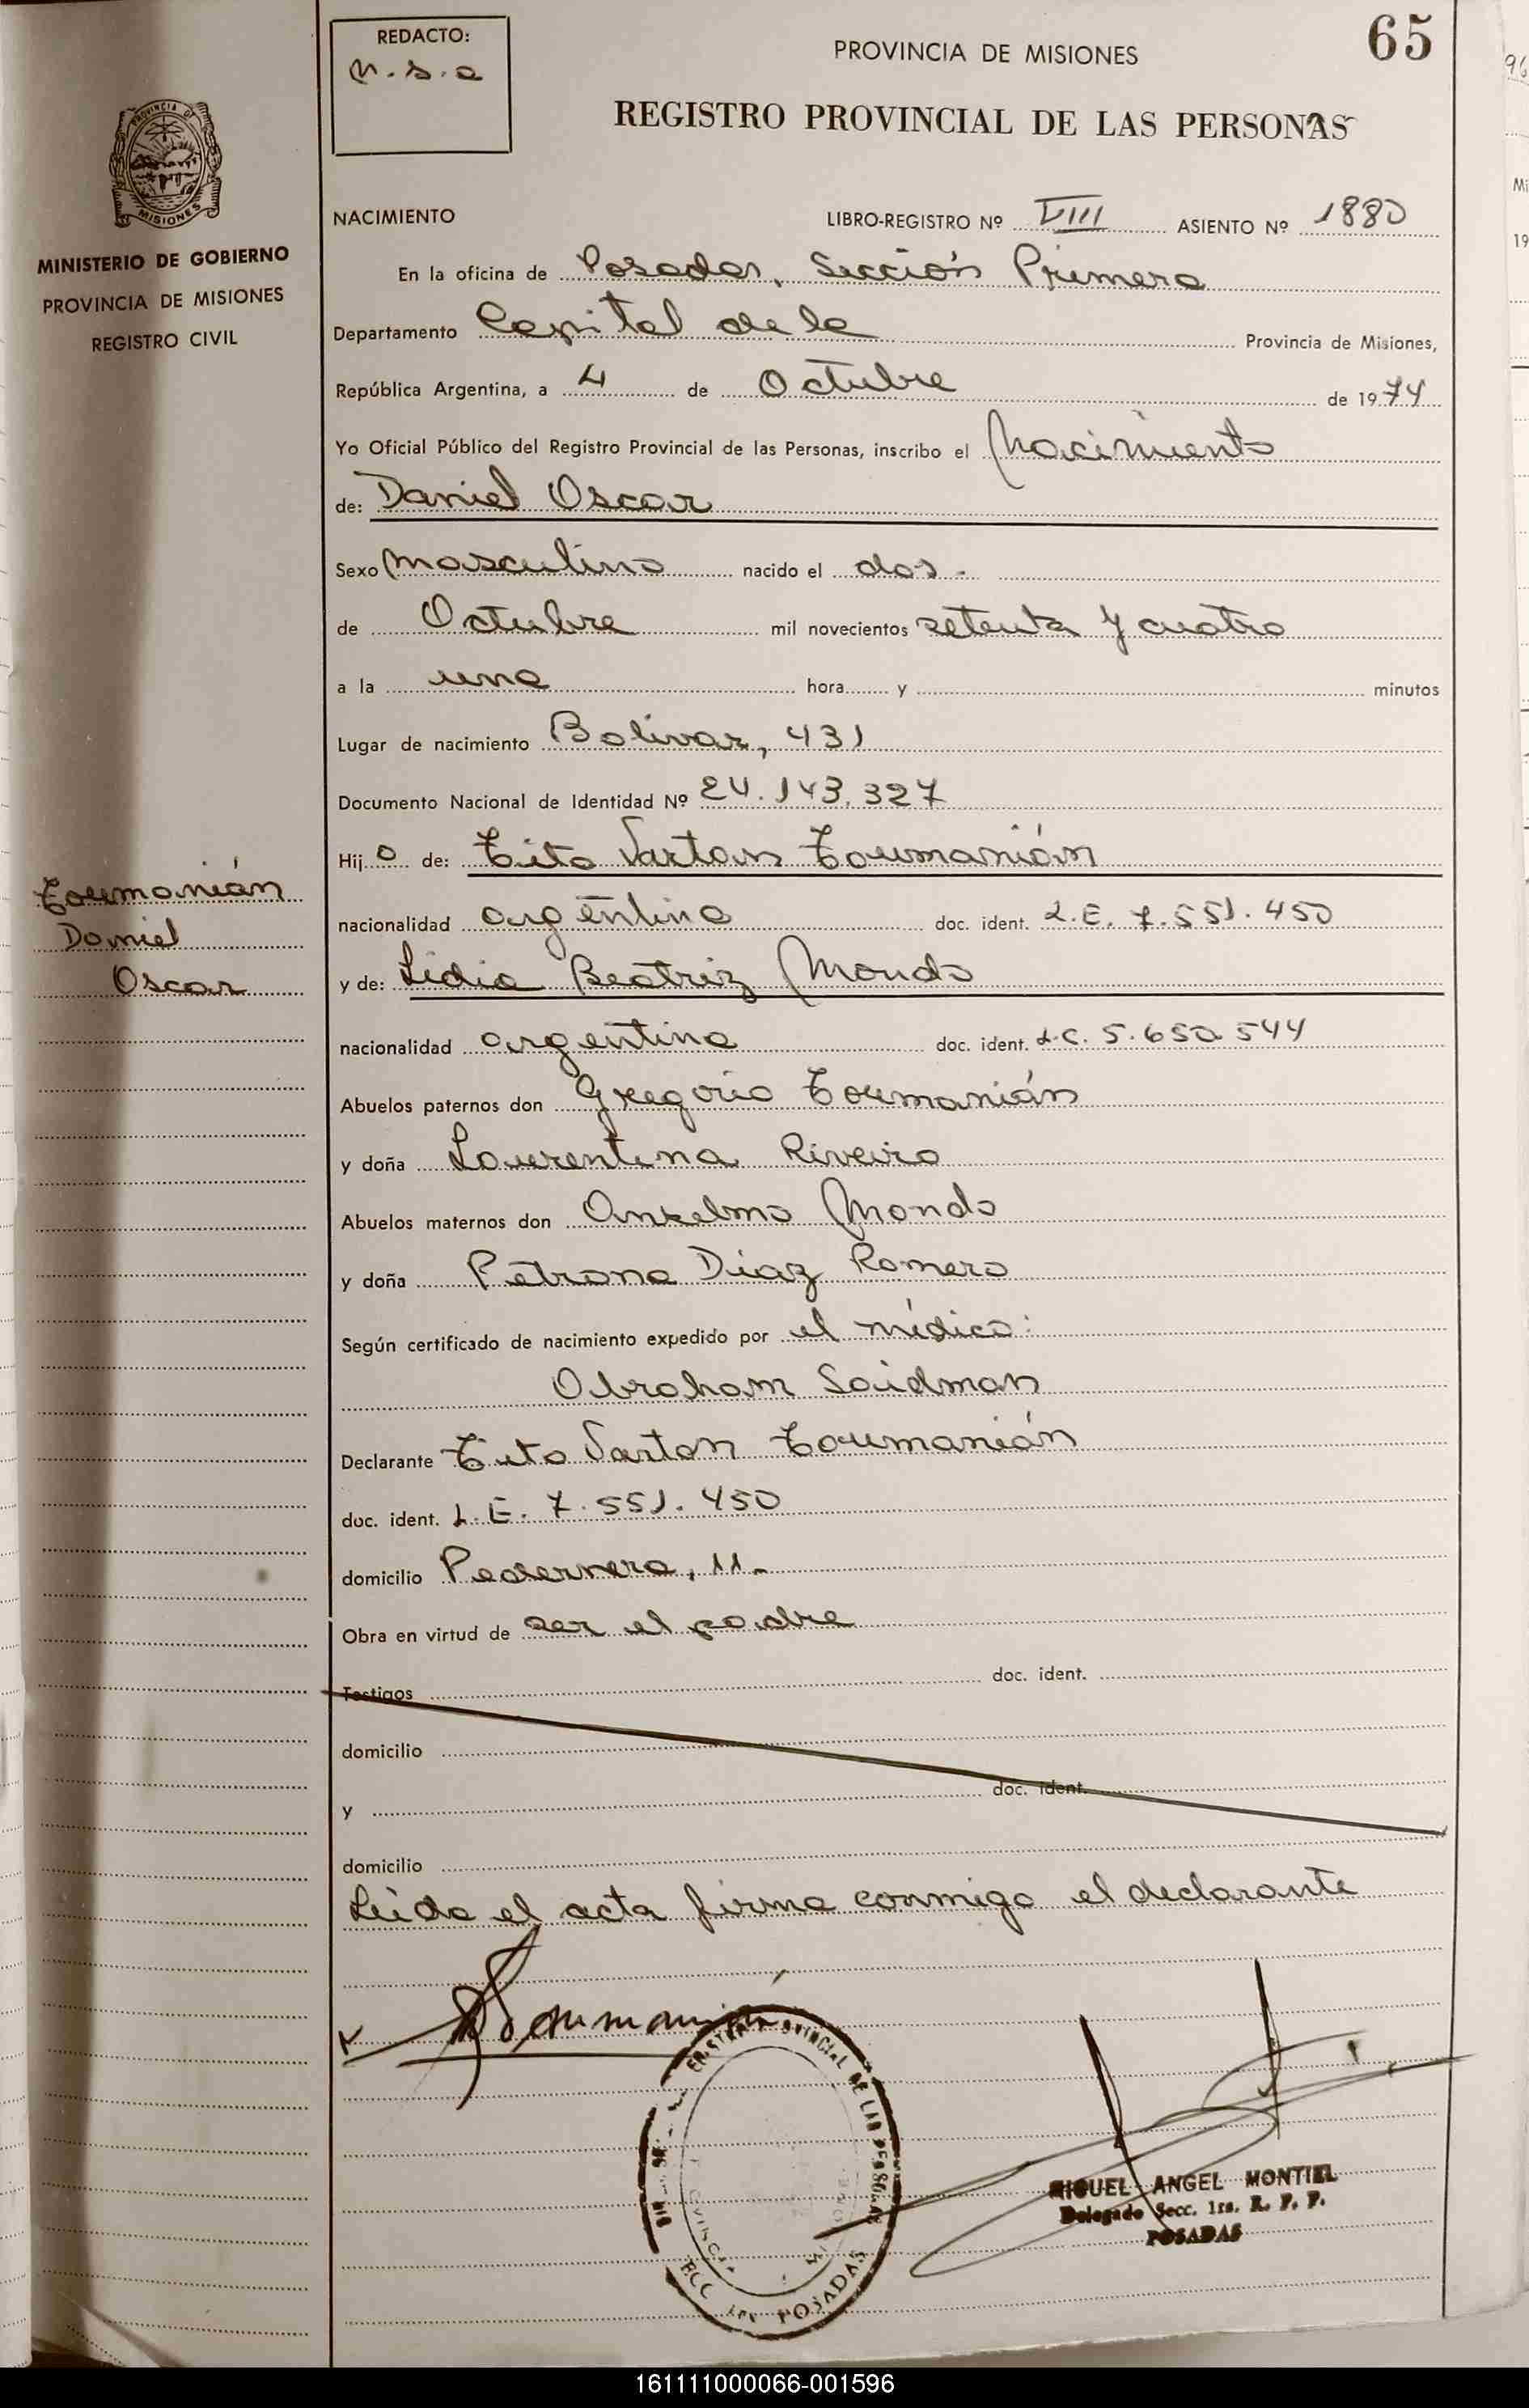 REDACTO:
n.s.a
PROVINCIA DE MISIONES
65
REGISTRO PROVINCIAL DE LAS PERSONAS
PROVINCIA DE
MISIONES
MINISTERIO DE GOBIERNO
PROVINCIA DE MISIONES
REGISTRO CIVIL
NACIMIENTO LIBRO-REGISTRO Nº VIII ASIENTO Nº 1880
En la oficina de Posadas, Sección Primera
Departamento Capital de la Provincia de Misiones,
República Argentina, a 4 de Octubre de 1974
Yo Oficial Público del Registro Provincial de las Personas, inscribo el Nacimiento
de: Daniel Oscar
Sexo masculino nacido el dos.-
de Octubre mil novecientos setenta y cuatro
a la una hora y minutos
Lugar de nacimiento Bolívar, 431
Documento Nacional de Identidad Nº 24.143.327
Hijo de: Tito Vartan Toumanián
nacionalidad argentina doc. ident. L.E. 7.551.450
y de: Lidia Beatriz Mondo
nacionalidad argentina doc. ident. L.C. 5.650.544
Abuelos paternos don Gregorio Toumanián
y doña Laurentina Riveiro
Abuelos maternos don Anselmo Mondo
y doña Petrona Díaz Romero
Según certificado de nacimiento expedido por el médico:
Abraham Saidman
Declarante Tito Vartan Toumanián
doc. ident. L.E. 7.551.450
domicilio Pedernera, 11.-
Obra en virtud de ser el padre
Testigos doc. ident.
domicilio
y doc. ident.
domicilio
Leída el acta firma conmigo el declarante
Toumanián
Daniel
Oscar
Toumanián
PROVINCIAL DE LAS PERSONAS
POSADAS
MIGUEL ANGEL MONTIEL
Delegado Secc. 1ra. R. P. P.
POSADAS
161111000066-001596